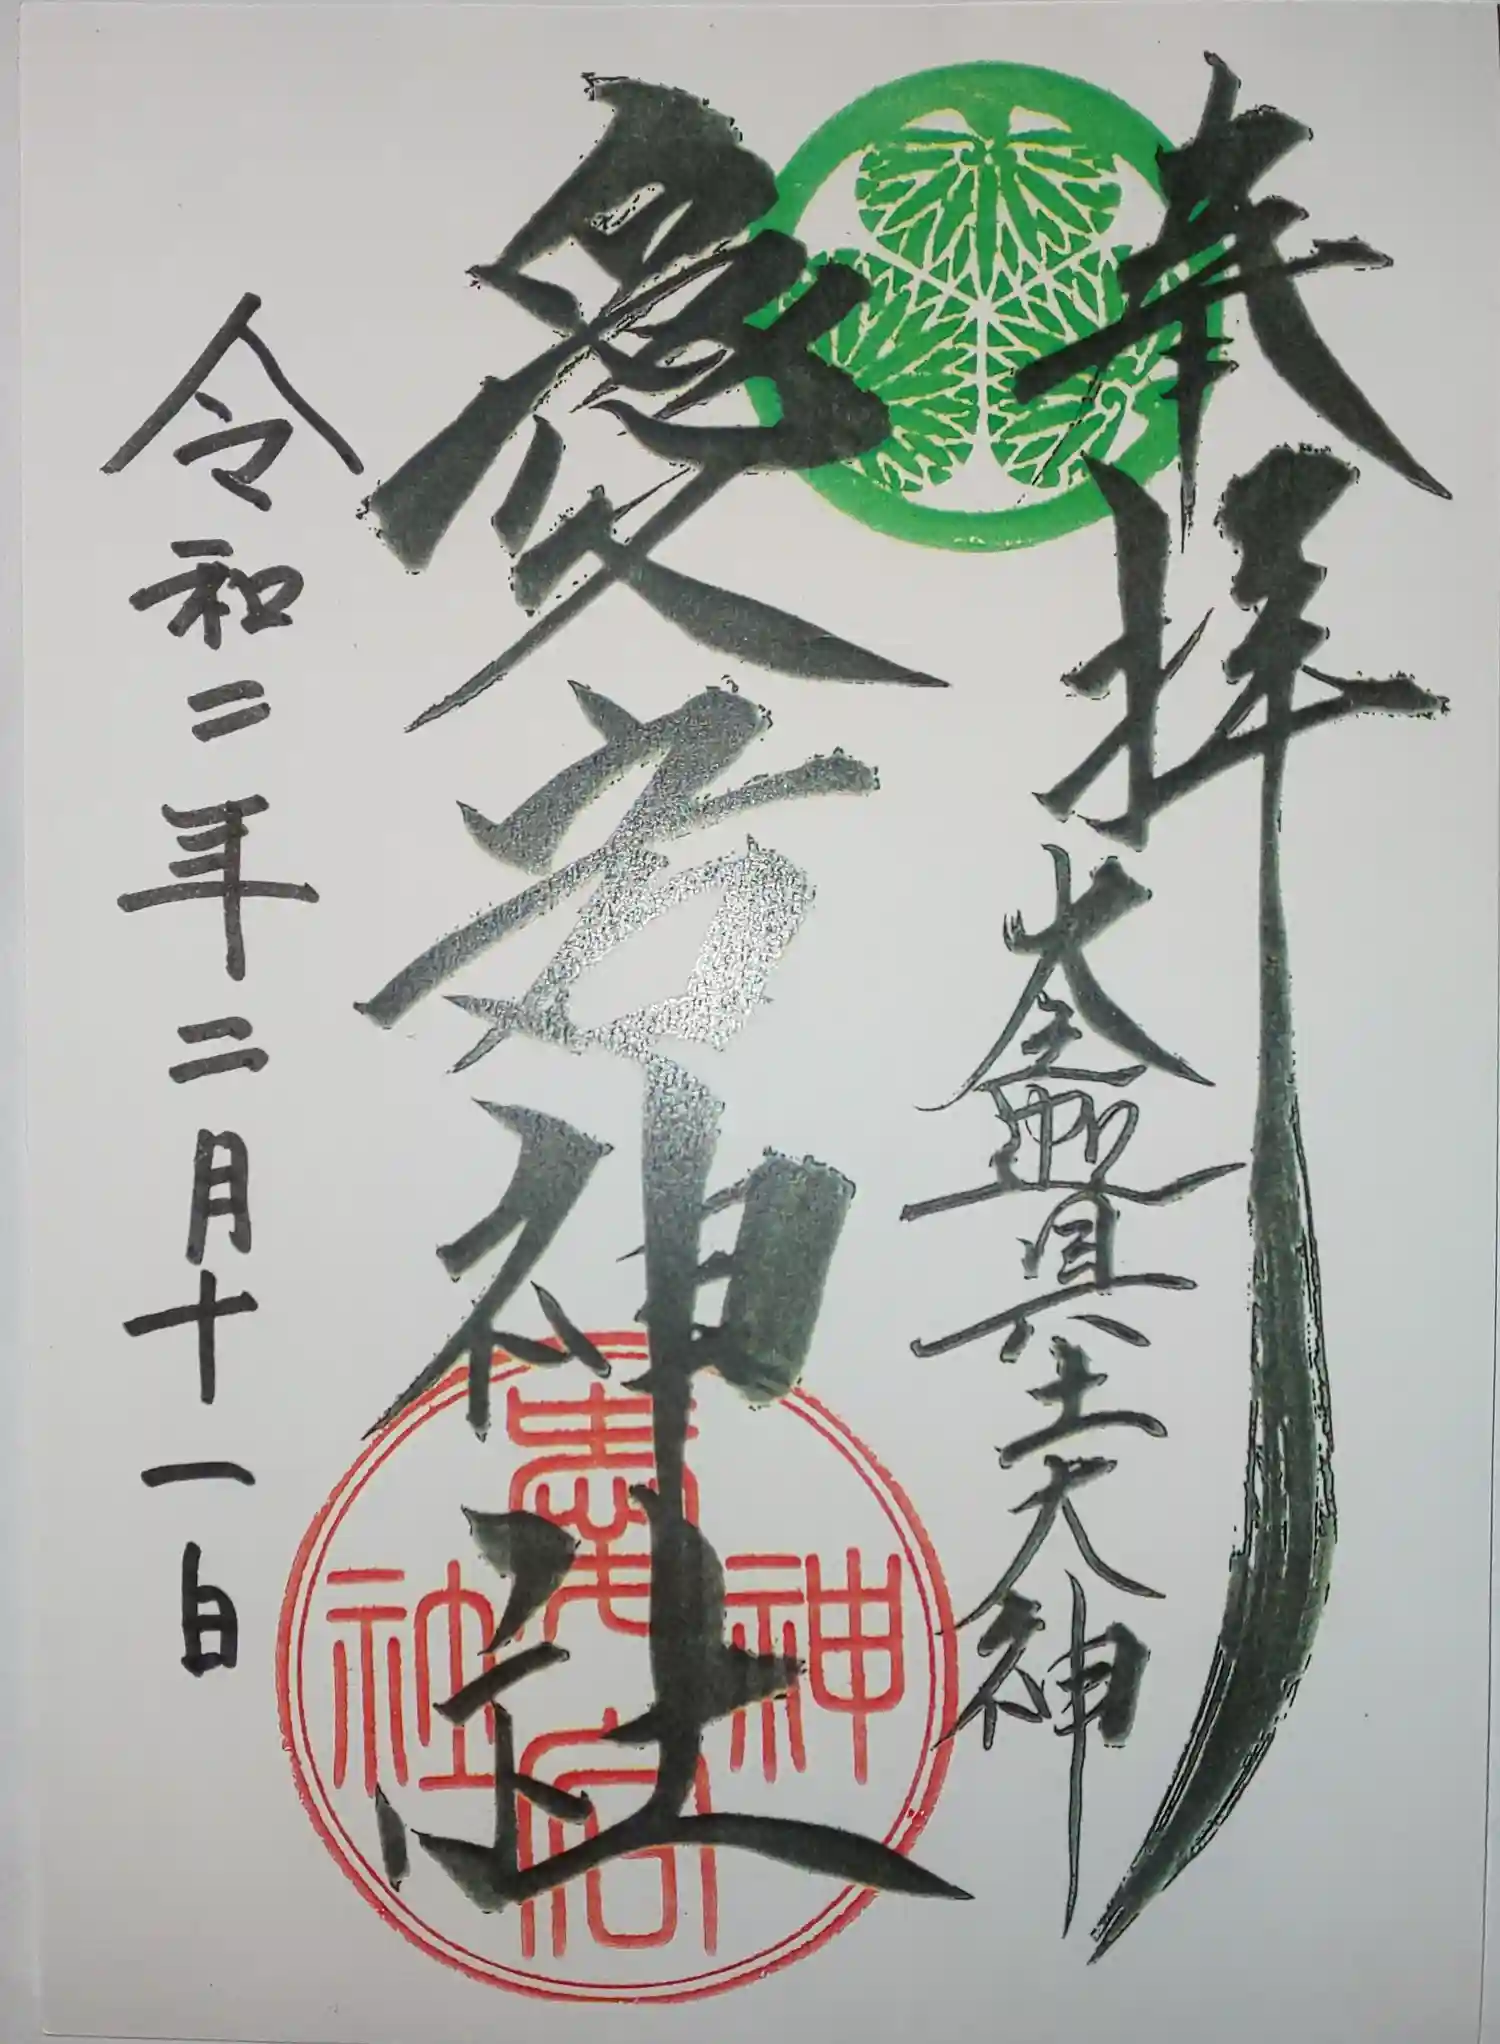 奉拝
具土大神
愛宕神社
令和二年二月十一日
愛宕神社